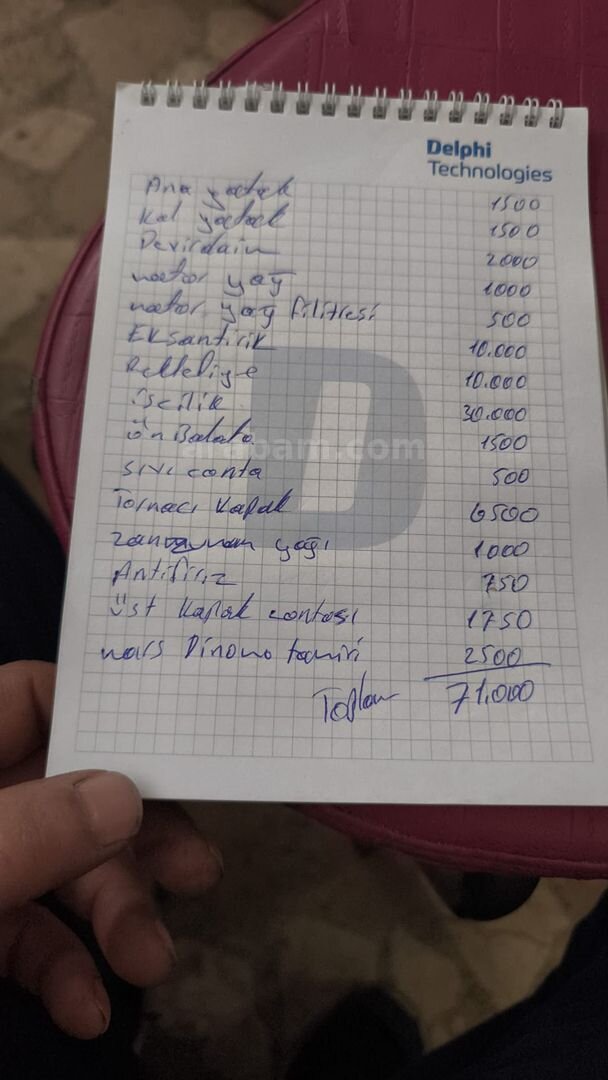 Delphi
Technologies
Ana yatak 1500
Kol yatak 1500
Devirdaim 2000
motor yağ 1000
motor yağ filitresi 500
Eksantirik 10.000
Rektefiye 10.000
işcilik 30.000
ön Balata 1500
arabam.com
sıvı conta 500
Tornacı Kapak 6500
zanzuman yağı 1000
Antifiriz 750
üst Kapak contası 1750
mars Dinamo tamiri 2500
Toplam 71.000